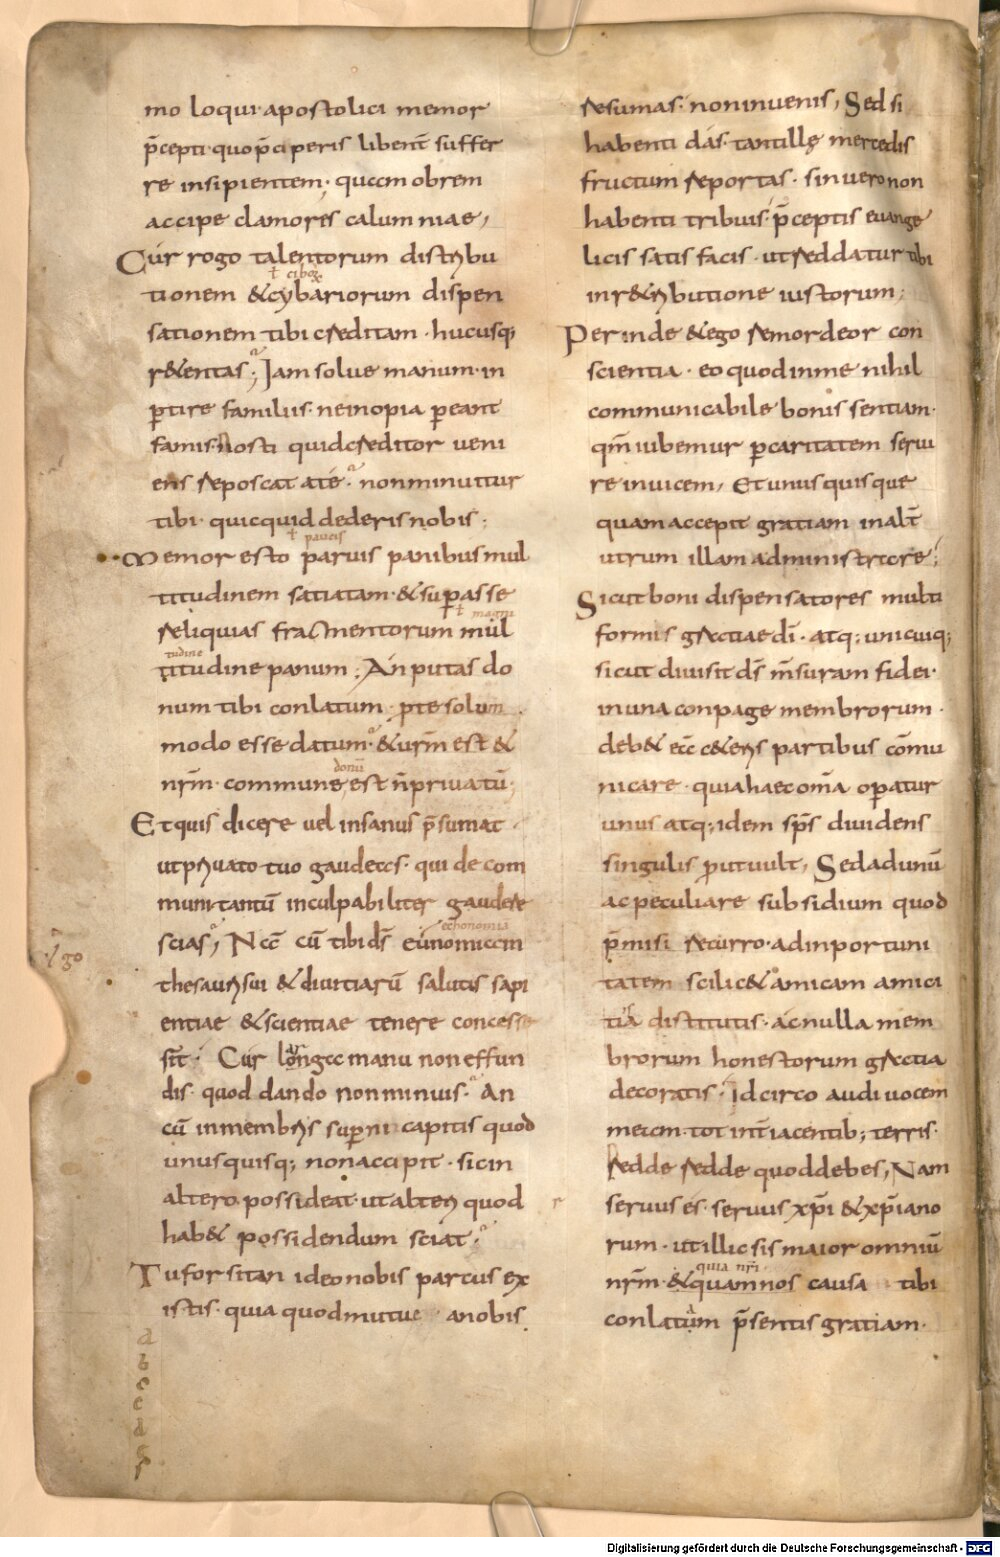 mo loqui· apostolici memor
p̄cepti· quo p̄ciperis libent̄ suffer
re insipientem· quam obrem
accipe clamores calumniae;
Cur rogo talentorum distribu
ł cibor̄
tionem &cybariorum dispen
sationem tibi creditam· hucusq;
r&entas; Iam solue manum· in
ꝑtire familiis· neinopia ꝑeant
famis· nosti quid creditor ueni
ens reposcat a te· non minuitur
tibi· quicquid dederis nobis;
ł paucis
Memor esto paruis panibus mul
titudinem satiatam· &suꝑasse
ł magni
reliquias fracmentorum mul
tudine
titudine panum; An putas do
num tibi conlatum· ꝑte solum
modo esse datum· &ur̄m est &
donū
nr̄m· commune, est n̄ priuatū;
Et quis dicere uel insanus p̄sumat·
ut priuato tuo gaudeas· qui de com
muni tantū inculpabiliter gaudere
echonomia
scias; Nā cū tibi d̄s eunomicam
thesauri sui & diuitiarū salutis sapi
entiae &scientiae tenere concesse
rit· Cur longa manu non effun
dis· quod dando non minuis· An
cū in membris suꝑni capitis quod
unusquisq; non accipit· sic in
altero possideat· ut alteri quod
hab& possidendum sciat·
Tu forsitan ideo nobis parcus ex
istis· quia quod mutue a nobis
a
b
c
c
d
resumas· non inuenis; Sed si
habenti das· tantillę mercedis
fructum reportas· sin uero non
habenti tribuis· p̄ceptis euange
licis satis facis· ut reddatur tibi
in r&ributione iustorum;
Perinde &ego remordeor con
scientia· eo quod in me nihil
communicabile bonis sentiam·
qm̄ iubemur ꝑ caritatem serui
re inuicem, Et unusquisque
quam accepit gratiam in alt̄
utrum illam administrare;
Sicut boni dispensatores multi
formis gratiae dī· atq; unicuiq;
sicut diuisit d̄s m̄suram fidei·
in una conpage membrorum·
deb& ec̄ c&eris partibus cōmu
nicare· quia haec om̄a oꝑatur
unus atq; idem sp̄s diuidens
singulis prout uult, Sed ad unū
ac peculiare subsidium quod
p̄misi recurro· ad inportuni
tatem scilic& amicam amici
tia distitutis· ac nulla mem
brorum honestorum gratia
decoratis· Idcirco audi uocem
meam· tot int̄iacentib; terris·
redde redde quod debes, Nam
seruus es· seruus xp̄i &xp̄iano
rum· ut illic sis maior omniū
quia nr̄i
nr̄m· &quam nos causa tibi
conlatum p̄sentis gratiam·
Digitalisierung gefördert durch die Deutsche Forschungsgemeinschaft - DFG